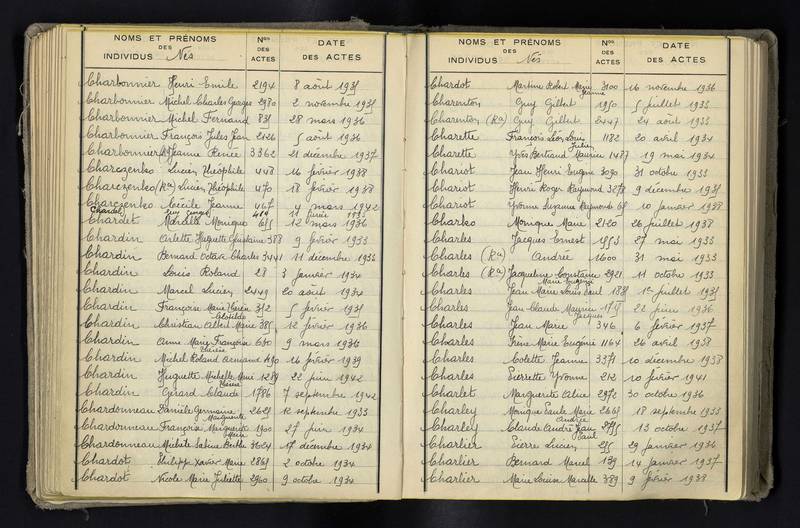 NOMS ET PRÉNOMS
DES
INDIVIDUS Nés
Nos
DES
ACTES
DATE
DES ACTES
Charbonnier Henri Emile 2194 8 août 1935
Charbonnier Michel Charles Georges 2980 2 novembre 1935
Charbonnier Michel Fernand 831 28 mars 1936
Charbonnier François Jules Jean 2126 5 août 1936
Charbonnier Jeanne Renée 3362 21 décembre 1937
Charczenko Lucien Théophile 448 16 février 1938
Charczenko (Ra) Lucien Théophile 470 18 février 1938
Charczenko Cécile Jeanne 467 4 mars 1942
Chardet 11 1935
Chardet Marcelle Monique 12 mars 1936
Chardin Arlette Huguette Ghislaine 388 9 février 1933
Chardin Bernard Octave Charles 3441 11 décembre 1933
Chardin Louis Roland 28 3 janvier 1934
Chardin Marcel Lucien 2449 20 août 1934
Chardin Françoise Marie Thérèse 312 5 février 1935
Clotilde
Chardin Christian Albert Marie 385 12 février 1936
Chardin Anne Marie Françoise 680 9 mars 1936
Chardin Michel Roland Armand 490 16 février 1939
Chardin Huguette Michelle 1289 22 juin 1942
Chardin Gérard Claude 1786 7 septembre 1942
Chardonneau Danièle Germaine 2629 12 septembre 1933
Marguerite
Chardonneau Françoise 1900 27 juin 1934
Chardonneau Michèle Sabine Berthe 3624 17 décembre 1934
Chardot Philippe Xavier Marie 2861 2 octobre 1934
Chardot Nicole Marie Juliette 2960 9 octobre 1934
NOMS ET PRÉNOMS
DES
INDIVIDUS Nés
Nos
DES
ACTES
DATE
DES ACTES
Chardot Martine Robert Marie 3100 16 novembre 1936
Jeanne
Charenton Guy Gilbert 1950 5 juillet 1933
Charenton (Ra) Guy Gilbert 2447 24 août 1933
Charette François Léon Louis 1182 20 avril 1934
Julien
Charette Yves Bertrand Maurice 1487 19 mai 1934
Chariot Jean Henri Eugène 3030 31 octobre 1933
Chariot Henri Roger Raymond 3278 9 décembre 1935
Chariot Yvonne Suzanne Raymonde 68 10 janvier 1938
Monique Marie 2120 26 juillet 1938
Charles Jacques Ernest 1553 27 mai 1933
Charles (Ra) Andrée 1600 31 mai 1933
Charles (Ra) Jacqueline Constance 2921 11 octobre 1933
Marie Eugénie
Charles Jean Marie Louis Paul 1881 1er juillet 1935
Charles Jean Claude Maurice 22 juin 1936
Jacques
Charles Jean Marie 346 6 février 1937
Charles Irène Marie Eugénie 1164 26 avril 1938
Charles Colette Jeanne 3371 10 décembre 1938
Charles Pierrette Yvonne 212 10 février 1941
Charlet Marguerite Aline 2972 30 octobre 1936
Charley Monique Paule Marie 2669 18 septembre 1933
Andrée
Charley Claude André Jean 2795 13 octobre 1937
Paul
Charlier Pierre Lucien 295 29 janvier 1936
Charlier Bernard Marcel 139 14 janvier 1937
Charlier Marie Louise Marcelle 389 9 février 1938